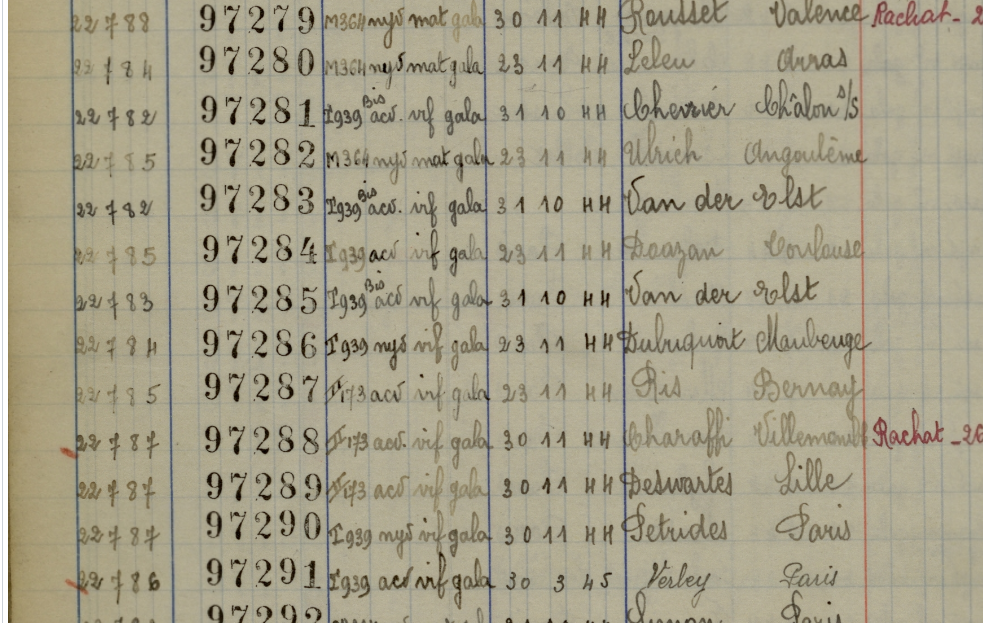 22788 97279 M364 nyd mat gala 30 11 44 Rousset Valence Rachat - 2
22784 97280 M364 nyd mat gala 23 11 44 Leleu Arras
22782 97281 T939 Bis acd. vif gala 31 10 44 Chevrier Châlon s/s
22785 97282 M364 nyd mat gala 23 11 44 Ulrich Angoulême
22782 97283 T939 Bis acd. vif gala 31 10 44 Van der Elst
22785 97284 T939 acd vif gala 23 11 44 Doazan Toulouse
22783 97285 T939 Bis acd vif gala 31 10 44 Van der Elst
22784 97286 T939 nyd vif gala 23 11 44 Maubeuge
22785 97287 acd vif gala 23 11 44 Ris Bernay
22787 97288 acd. vif gala 30 11 44 Charaffi Rachat - 26
22787 97289 acd vif gala 30 11 44 Deswartes Lille
22787 97290 T939 nyd vif gala 30 11 44 Petrides Paris
22786 97291 T939 acd vif gala 30 3 45 Verley Paris
97292 Paris